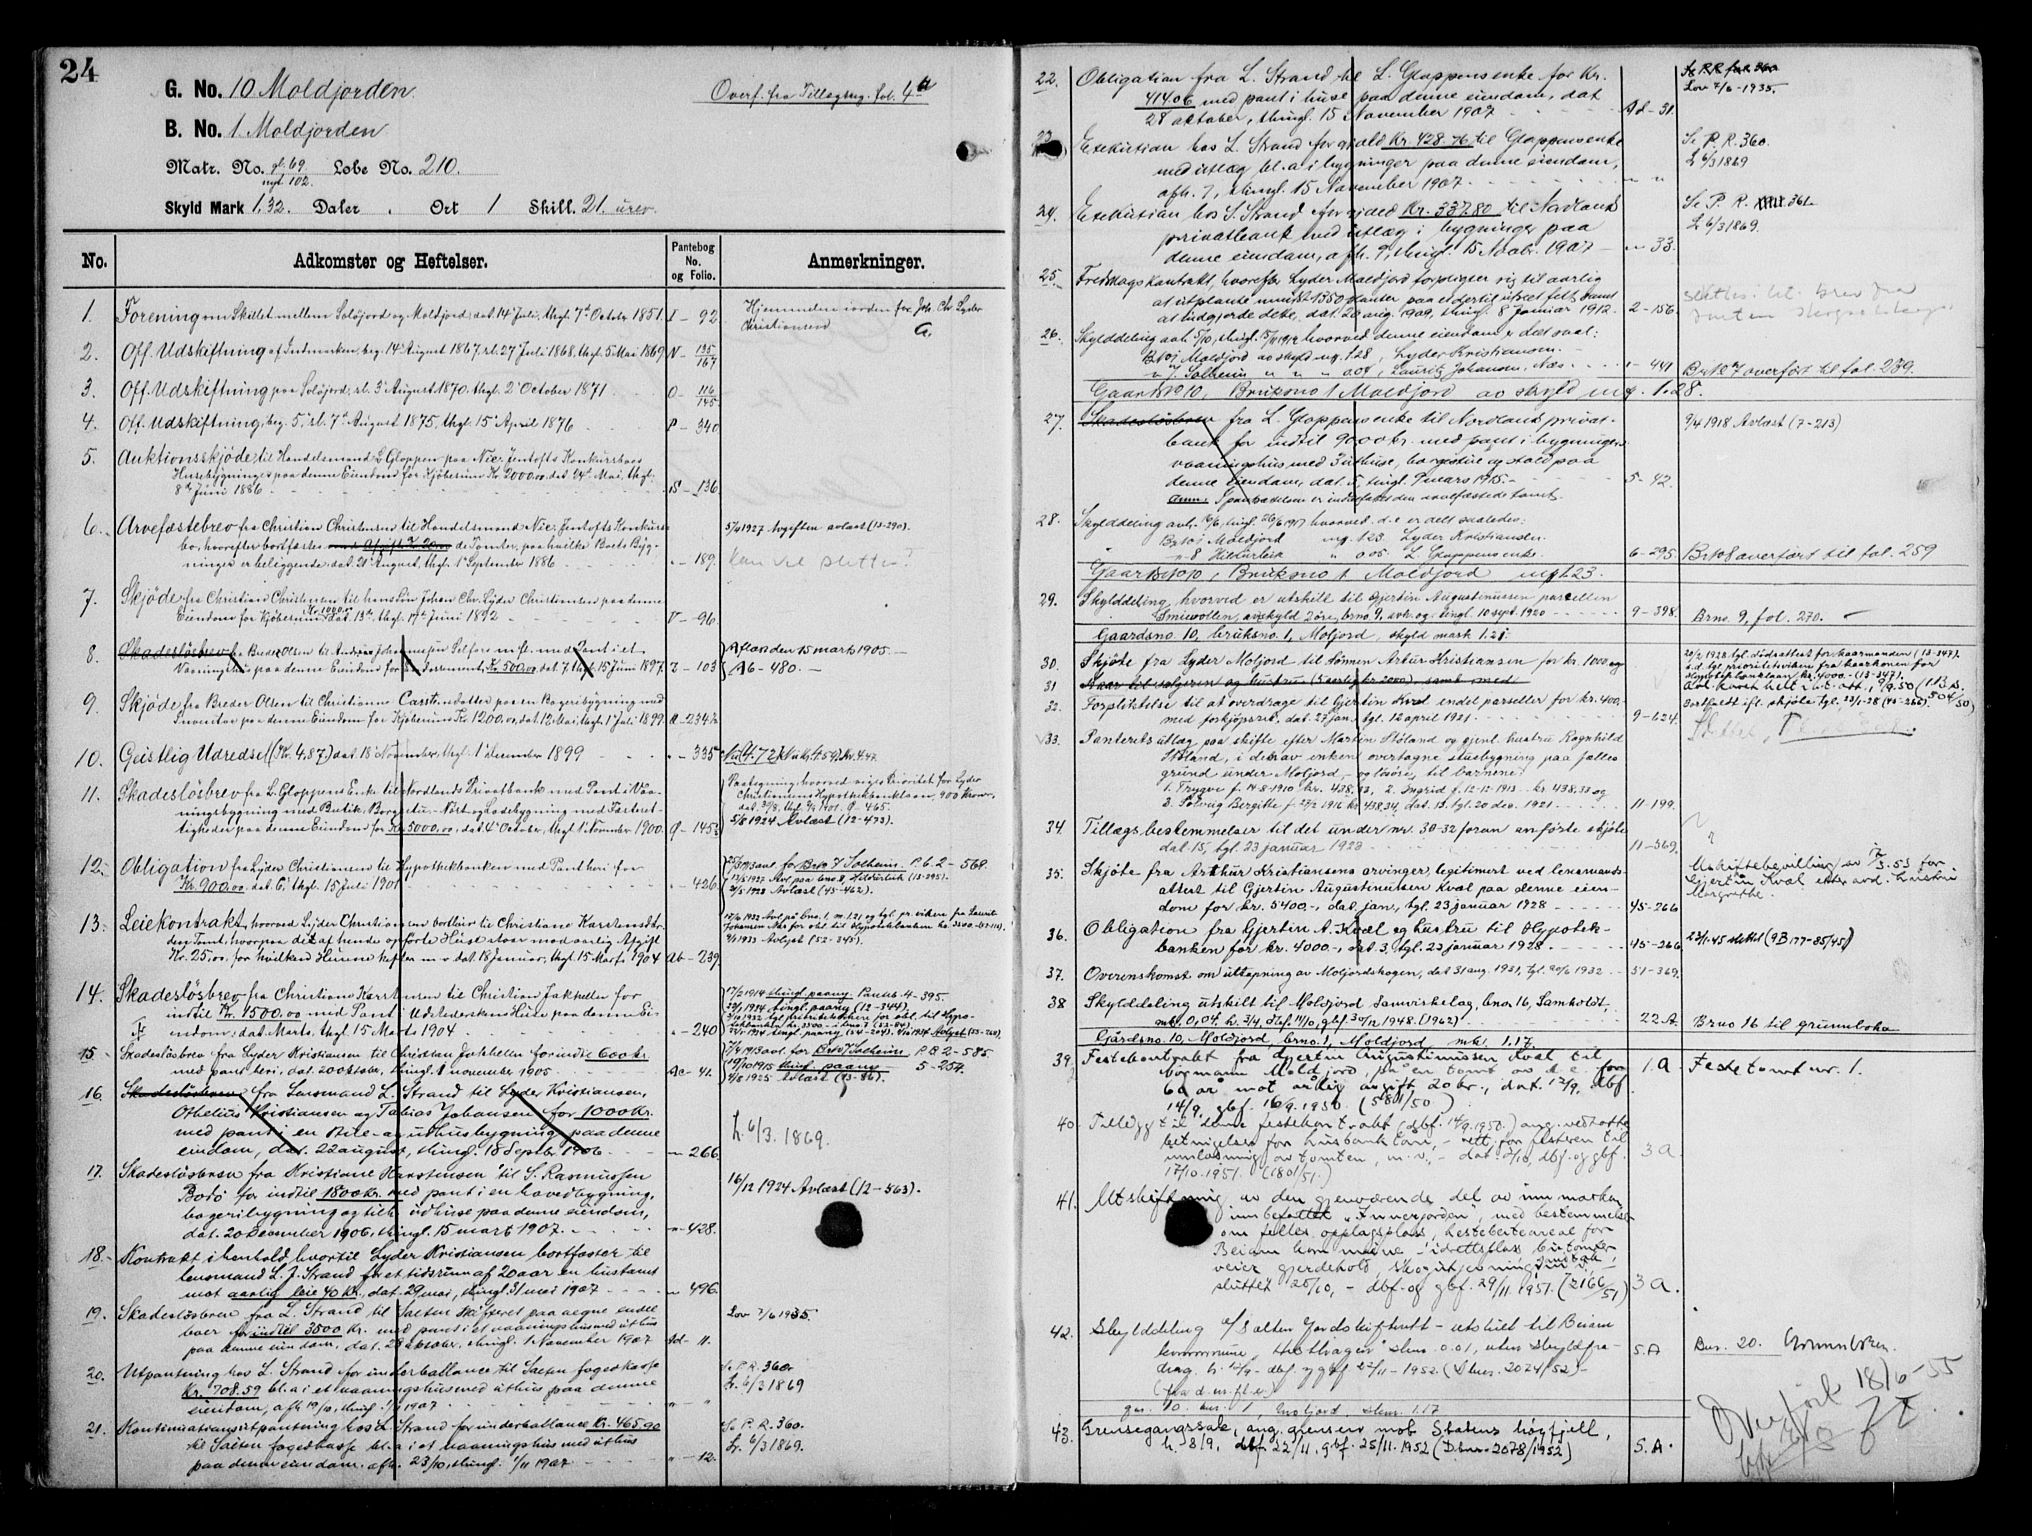 24
G. No. 10 Moldjorden.
Overf. fra Tillægsreg. fol. 4a
B. No. 1. Moldjorden
Matr. No. gl. 69 Løbe No. 210.
nyt 102.
Skyld Mark 1.32. Daler . Ort 1 Skill. 21. urev.
No. Adkomster og Heftelser. Pantebog No. og Folio. Anmerkninger.
1. Forening om Skillet mellem Soløjord og Moldjord, dat. 14 Juli, thgl. 7de October 1851. I - 92. Hjemmelen i orden for Joh. Chr. Lyder
Christiansen
2. Off. Udskiftning af Indmarken, beg. 14 August 1867, sl. 27 Juli 1868, thgl. 5 Mai 1869 N - 135/167
3. Off. Udskiftning paa Soløjord, sl. 3 August 1870. thgl. 2 October 1871 O - 116/145
4. Off. Udskiftning, beg. 5, sl. 7de August 1875, thgl. 15 April 1876 P - 340
5. Auktionsskjøde til Handelsmand L. Gloppen paa Nic. Jentofts Konkursboes
Husebygninger paa denne Eiendom for Kjøbesum Kr. 2000.00, dat. 24de Mai, thgl.
8de Juni 1886 S - 136
6. Arvefæstebrev fra Christian Christensen til Handelsmand Nic. Jentofts Konkurs-
bo, hvorefter bortfæstes mod Afgift Kr. 20.00 de Tomter, paa hvilke Boets Byg-
ninger er beliggende dat. 21 August, thgl. 1 September 1886 " - 189.
5/4 1927 Avgiften avlæst (13-290).
Kan vel slettes?
7. Skjøde fra Christian Christensen til hans Søn Johan Chr. Lyder Christiansen paa denne
Eiendom for Kjøbesum Kr. 1000.00 dat. 13de, thgl. 17de Juni 1892 V - 96.
8. Skadesløsbrev fra Breder Olsen til Andreas Johannesen Solfors m.fl. med Pant i et
Vaaningshus paa denne Eiendom for Kr. 500.00, dat. 7, thgl. 15 Juni 1897. Z - 103
Aflæst den 15 marts 1905. —
A6 - 480. —
9. Skjøde fra Breder Olsen til Christianne Carstensdatter paa en Bageribygning med
Inventar paa denne Eiendom for Kjøbesum Kr. 1200.00, dat. 12 Mai, thgl. 1 Juli 1899.
10. Geistlig Udredsel (Kr. 4.87) dat. 18 November, thgl. 1 December 1899 " - 335
11. Skadesløsbrev fra L. Gloppens Enke til Nordlands Privatbank med Pant i Vaa-
ningsbygning med Butik, Borgstu-, Nøst og Ladebygning med Fæstret-
tigheder paa denne Eiendom for Kr. 5000.00, dat. 4 October, thgl. 1 November 1900.
Paategning hvorved viges Prioritet for Lyder
Christiansens Hypothekbanklaan, 900 Kroner.
5/8 1924 Avlæst (12-473).
12. Obligation fra Lyder Christiansen til Hypothekbanken med Pant heri for
Kr. 900.00 dat. 6, thgl. 15 Juli 1901 " - 426
avl. for Br. No 7 Solheim P.b. 2 - 568
13. Leiekontrakt, hvorved Lyder Christiansen bortleier til Christiane Karstensdat-
den Tomt, hvorpaa det af hende opførte Huse staar mod aarlig Afgift
Kr. 25.00, for hvilken Heimme hefter m.v. dat. 18 Januar, thgl. 15 Marts 1904 Ab - 239.
14. Skadesløsbrev fra Christiane Karstensen til Christian Jakhelln for
indtil Kr. 1500.00 med Pant i Udstederskens Huse paa denne Ei-
endom, dat. Marts, thgl. 15 Marts 1904 " - 240
15. Skadesløsbrev fra Lyder Kristiansen til Christian Jakhelln for indtil 600 kr
med pant heri, dat. 20 oktober, thingl. 1 november 1905 Ac - 41.
avl. for Br. No 7 Solheim P.B. 2 - 585.
5 - 254.
16. Skadesløsbrev fra Lensmand L. Strand til Lyder Kristiansen,
Othelius Kristiansen og Tobias Johansen for 1000 kr.
med pant i en stue- og udhusbygning paa denne
eiendom, dat. 22 august, thingl. 18 Septbr. 1906 " 266.
L. 6/3. 1869.
17. Skadesløsbrev fra Kristiane Karstensen til S. Rasmussen
Bodø for indtil 1800 kr. med pant i en hovedbygning,
bageribygning og tilh. udhuse paa denne eiendom,
dat. 20 December 1906, thingl. 15 mart 1907. " 428.
16/12 1924 Avlæst (12-563).
18. Kontrakt i henhold hvortil Lyder Kristiansen bortfæster til
lensmand L. J. Strand for et tidsrum af 20 aar en hustomt
mot aarlig leie 40 kr., dat. 29 mai, thingl. 31 mai 1907 " 496.
19. Skadesløsbrev fra L. Strand til Salten Skifteret paa aegne endel
boer for indtil 3500 Kr. med pant i et vaaningshus med uthus
paa denne eiendom, dat. 28 oktober, thingl. 1 November 1907 Ad - 11.
Lov 7/6 1935.
20. Utpantning hos L. Strand for underballance til Salten fogedkasse
Kr. 708.59 bl. a. i et vaaningshus med uthus paa denne
eiendom, afh. 19/10, thingl. 1/11 1907 " "
Se P.R. 360.
L. 6/3 1869
21. Kontinuationsutpantning hos L. Strand for underballance Kr. 465.90
til Salten fogedkasse bl. a. i et vaaningshus med uthus
paa denne eiendom. afh. 23/10, thingl. 1/11 1907 " - 12.
Se P.R. 360.
L. 6/3 1869.
22. Obligation fra L. Strand til L. Gloppens enke for Kr.
414.06 med pant i huse paa denne eiendom, dat
28 oktober, thingl. 15 November 1907 Ad - 31.
Se P.R. fol. 360
Lov 7/6 - 1935.
23. Exekution hos L. Strand for gjæld Kr. 428.76 til Gloppens enke
med utlæg bl. a. i bygninger paa denne eiendom,
afh. 7, thingl. 15 November 1907 " "
Se P.R. 360.
L 6/3 1869
24. Exekution hos S. Strand for gjæld Kr. 337.80 til Nordlands
privatbank med utlæg i bygninger paa
denne eiendom, afh. 9, thingl. 15 Novbr. 1907 " 33.
Se P.R. 361.
L 6/3 1869.
25. Fredskogskontrakt, hvorefter Lyder Moldjord forpligter sig til aarlig
at utplante mindst 1350 planter paa et dertil utseet felt, samt
at indgjærde dette, dat. 20 aug. 1909, thingl. 8 Januar 1912. 2 - 156
26. Skylddeling avh. 5/10, thingl. 15/11 1912 hvorved denne eiendom er delt saal:
Br. No 1 Moldjord av skyld mg. 1.28, Lyder Kristiansen.
" " 7 Solheim " " " 0.04, Lauritz Johansen, Næs. " - 441
Br. No 7 overført til fol. 239.
Gaards No 10, Bruksno 1 Moldjord av skyld mg. 1.28.
27. Skadesløsbrev fra L. Gloppens enke til Nordlands privat-
bank for indtil 9000 kr. med pant i bygninger:
vaaningshus med 3 uthuse, borgestue og stald paa
denne eiendom, dat. 5, tingl. 9 mars 1915. 5 - 42.
Anm. I pantsættelsen er indbefattet den arvefæstede tomt.
9/4 1918 Avlæst (7-213)
28. Skylddeling avh. 16/6, tingl. 26/6 1917 hvorved d.e. er delt saaledes:
Br. No 1 Moldjord mg. 1.23. Lyder Kristiansen.
" " 8 Hildurleik " 0.05. L. Gloppens enke. 6 - 295.
Br. No 8 overført til fol. 259
Gaards No 10, Bruksno 1 Moldjord mg 1.23.
29. Skylddeling, hvorved er utskilt til Gjertin Augustinussen parcellen
Smievollen, av skyld 2 øre, brno. 9, avh. og tingl. 10 sept. 1920 9 - 398.
Brno. 9, fol. 270.
Gaardsno. 10, bruksno. 1, Moljord, skyld mark 1.21.
30. Skjøte fra Lyder Moljord til sønnen Artur Kristiansen for kr. 1000 og
31. Kaar til sælgeren og hustru (5 aarlig kr. 2000), samt med
32. Forpliktelse til at overdrage til Gjertin Kval endel parseller for kr. 400,-
med forkjøpsret, dat. 27 jan., tgl. 12 april 1921. 9 - 624.
33. Panteretsutlæg paa skifte efter Martin Støland og gjenl. hustru Ragnhild
Støland, i den av enken overtagne stuebygning paa fælles
grund under Moljord, og løsøre, til barnene:
1. Trygve f. 14-8-1910 kr. 438.33, 2. Ingrid f. 12-12-1913 kr. 438.33 og
3. Solveig Bergitte f. 21/2 1916 kr. 438.34, dat. 13, tgl. 20 dec. 1921. 11 - 199.
34. Tillægsbestemmelser til det under nr. 30-32 foran anførte skjøte
dat. 15, tgl. 23 januar 1923 11 - 369.
35. Skjøte fra Arthur Kristiansens arvinger, legitimert ved lensmands-
attest til Gjertin Augustinussen Kval paa denne eien-
dom for kr. 5400,-, dat. jan., tgl. 23 januar 1928 45 - 266
Uskiftebevilling av 17/3.53 for
Gjertin Kval efter avd. hustru
Margrethe.
36. Obligation fra Gjertin A. Kval og hustru til Hypotek-
banken for kr. 4000.-, dat. 3, tgl. 23 januar 1928. 45 - 266
23/1-45 slettet (9B 177-85/45)
37. Overenskomst om uttapning av Moljordskogen, dat. 31 aug. 1931, tgl. 20/6 1932 51 - 369.
38. Skylddeling utskilt til Moldjord Samvirkelag, bno. 16, Samholdt,
mk. 0,04, h. 3/4, dbf. 14/10, gbf. 30/12 1948. (1962) 22 A.
Brno 16 til grunnboka
Gårdsno. 10, Moldjord, brno. 1, Moldjord mk. 1.17.
39. Festekontrakt fra Gjertin Augustinussen Kval til
Normann Moldjord, på en tomt av d.e. for
60 år mot årlig avgift 20 kr., dat. 12/9, dbf.
14/9, gbf. 16/9. 1950. (5801/50) 1. A
Festetomt nr. 1.
40. Tillegg til denne festekontrakt (gbf. 14/9.1950) ang. vedtatte
betingelser for husbanklån, rett for festeren til
innløsning av tomten, m.v., - dat. 2/10, dbf. og gbf.
17/10. 1951. (1801/51.) 3 A.
41. Utskiftning av den gjenværende del av innmarken
innbefattet "Innerjorden", med bestemmelse
om felles opplagsplass, hestebeiteareal for
Beiarn hornmeine - idrettsplass, bustomter
veier gjerdehold, skogutjevning,
sluttet 25/10, - dbf. og gbf. 29/11. 1951. (2166/51) 3 A.
42. Skylddeling v/ Salten Jordskifterett - utskilt til Beiarn
kommune, Hesthagen skm. 0.01, uten skyldfra-
drag h. 12/9 - dbf. og gbf. 25/11 - 1952. (Dnr. 2024/52) - 5. A
Bnr. 20. Grunnboken.
gnr. 10. bnr. 1 Moljord skm. 1.17
43. Grensegangssak, ang. grensen mot Statens høyfjell,
h. 8/9, dbf. 22/11, gbf. 25/11. 1952 (Dbnr. 2078/1952) 5. A.
Overført 18/6-55